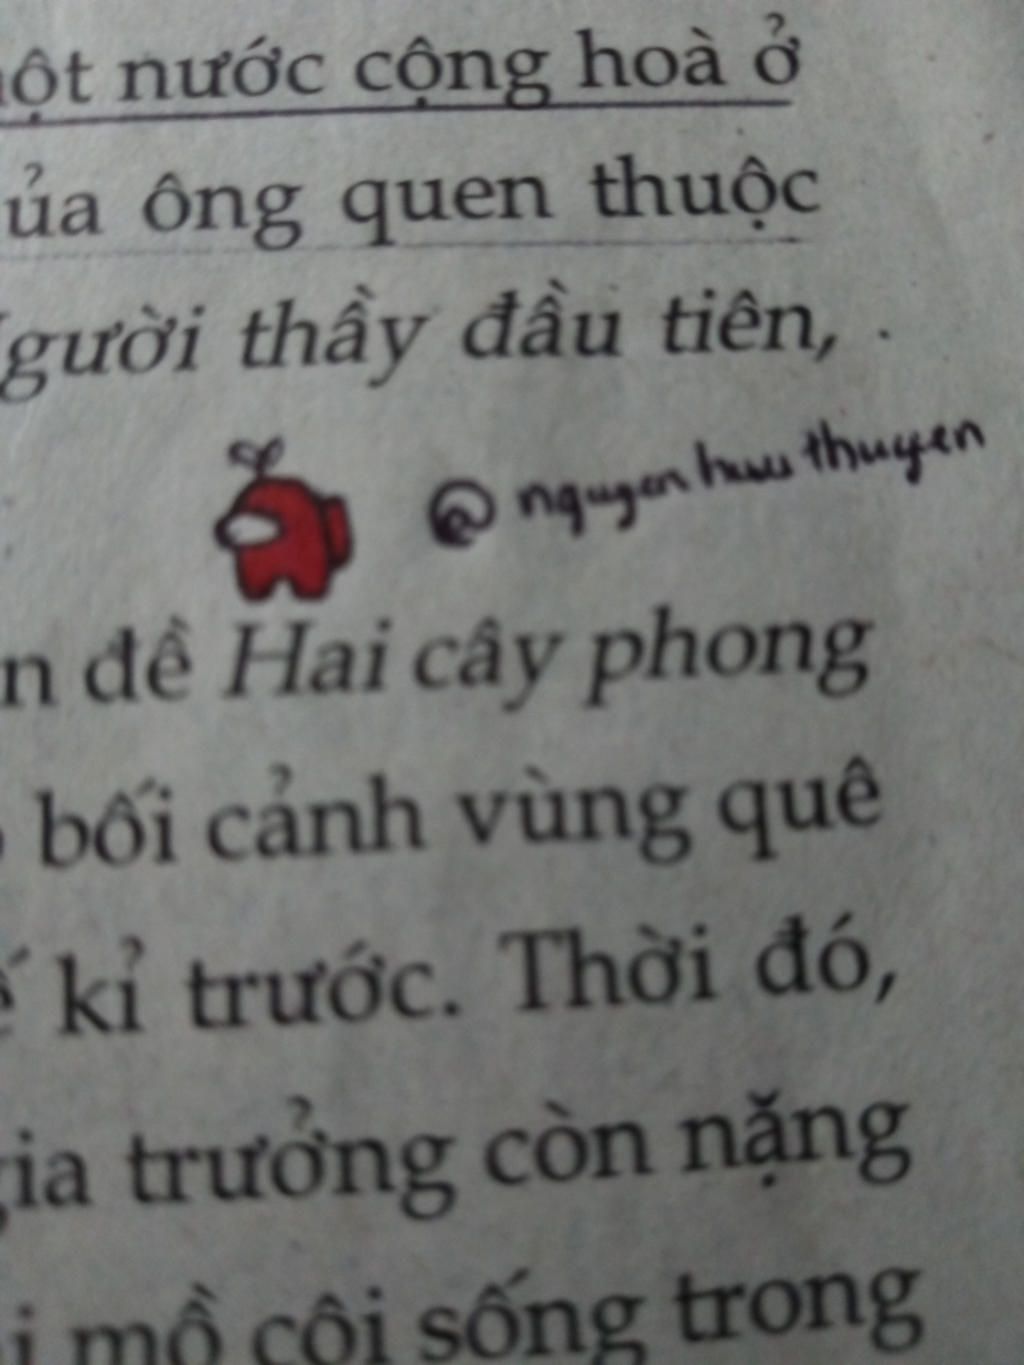 một nước cộng hoà ở
của ông quen thuộc
Người thầy đầu tiên,
@nguyenhuuthuyen
n đề Hai cây phong
bối cảnh vùng quê
kỉ trước. Thời đó,
gia trưởng còn nặng
i mồ côi sống trong